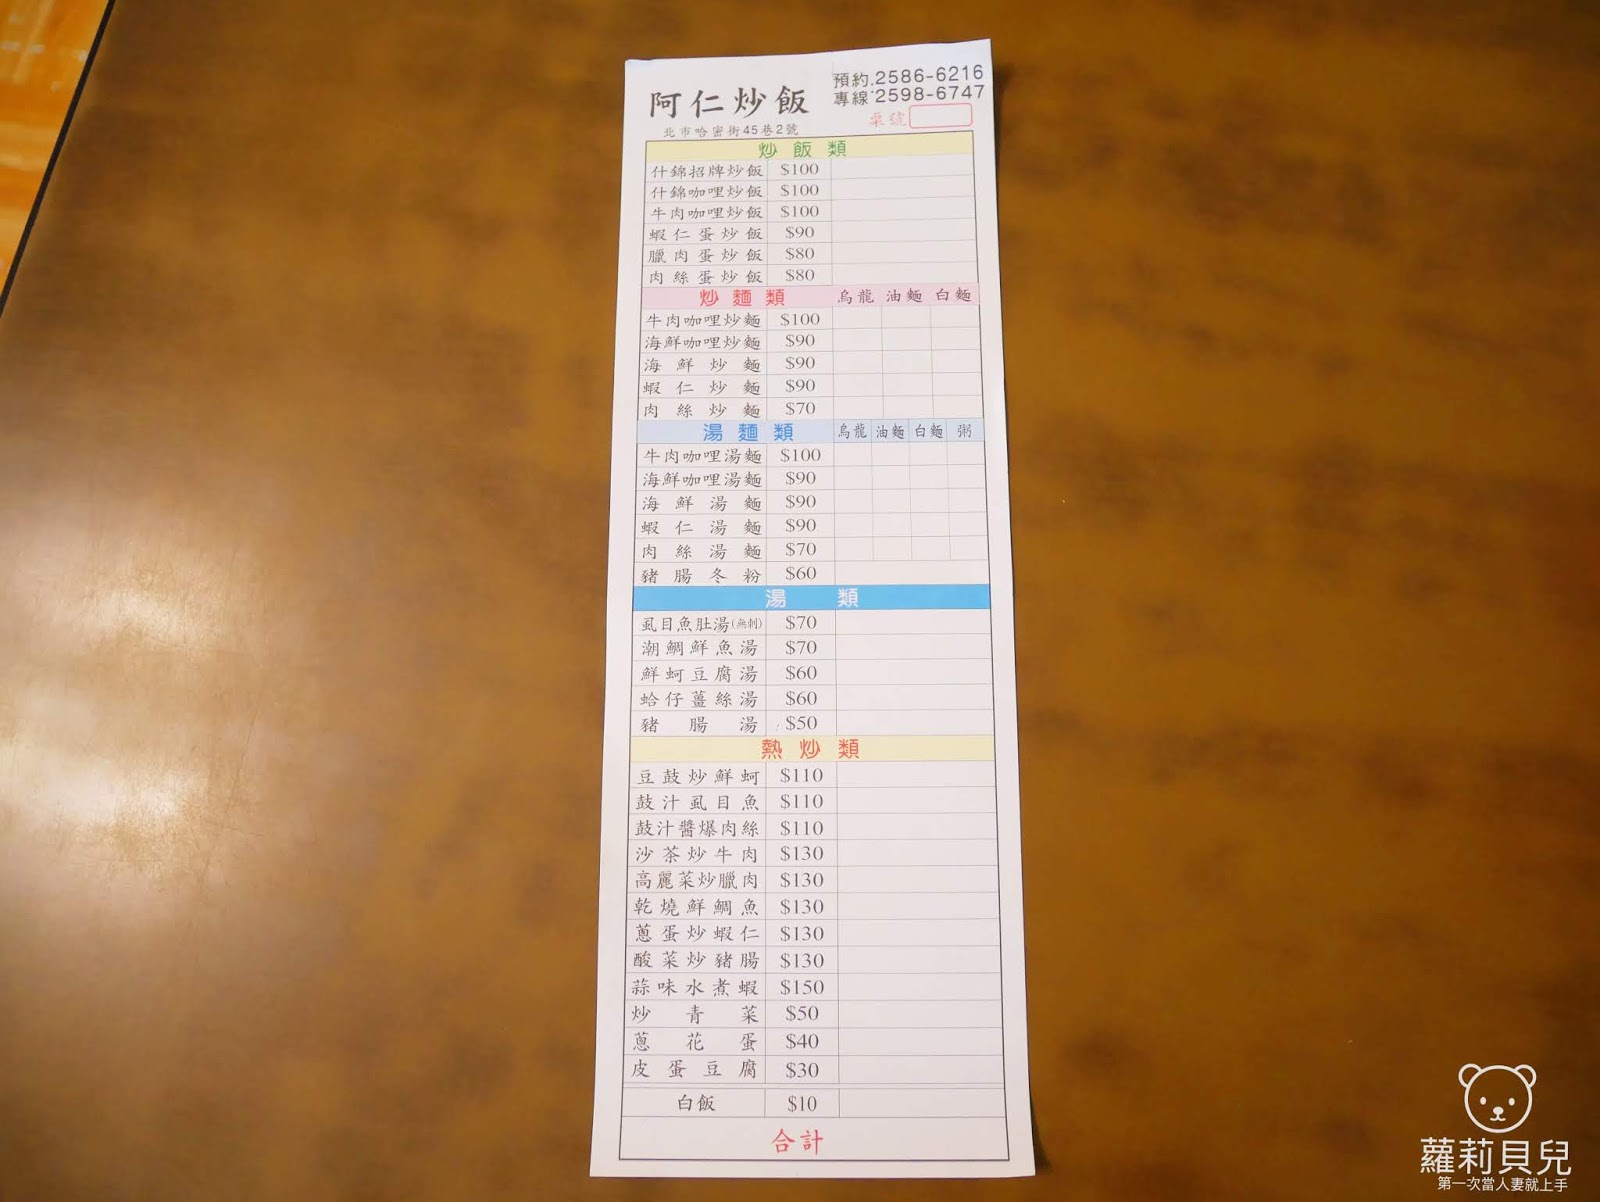 阿仁炒飯
預約.2586-6216
專線.2598-6747
北市哈密街45巷2號
桌號
炒飯類
什錦招牌炒飯 $100
什錦咖哩炒飯 $100
牛肉咖哩炒飯 $100
蝦仁蛋炒飯 $90
臘肉蛋炒飯 $80
肉絲蛋炒飯 $80
炒麵類 烏龍 油麵 白麵
牛肉咖哩炒麵 $100
海鮮咖哩炒麵 $90
海鮮炒麵 $90
蝦仁炒麵 $90
肉絲炒麵 $70
湯麵類 烏龍 油麵 白麵 粥
牛肉咖哩湯麵 $100
海鮮咖哩湯麵 $90
海鮮湯麵 $90
蝦仁湯麵 $90
肉絲湯麵 $70
豬腸冬粉 $60
湯類
虱目魚肚湯(無刺) $70
潮鯛鮮魚湯 $70
鮮蚵豆腐湯 $60
蛤仔薑絲湯 $60
豬腸湯 $50
熱炒類
豆鼓炒鮮蚵 $110
鼓汁虱目魚 $110
鼓汁醬爆肉絲 $110
沙茶炒牛肉 $130
高麗菜炒臘肉 $130
乾燒鮮鯛魚 $130
蔥蛋炒蝦仁 $130
酸菜炒豬腸 $130
蒜味水煮蝦 $150
炒青菜 $50
蔥花蛋 $40
皮蛋豆腐 $30
白飯 $10
合計
蘿莉貝兒
第一次當人妻就上手